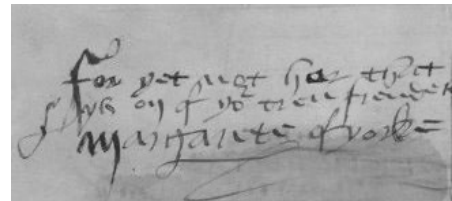 For yet not har that
ys on of yor treu frendes
margarete of yorke